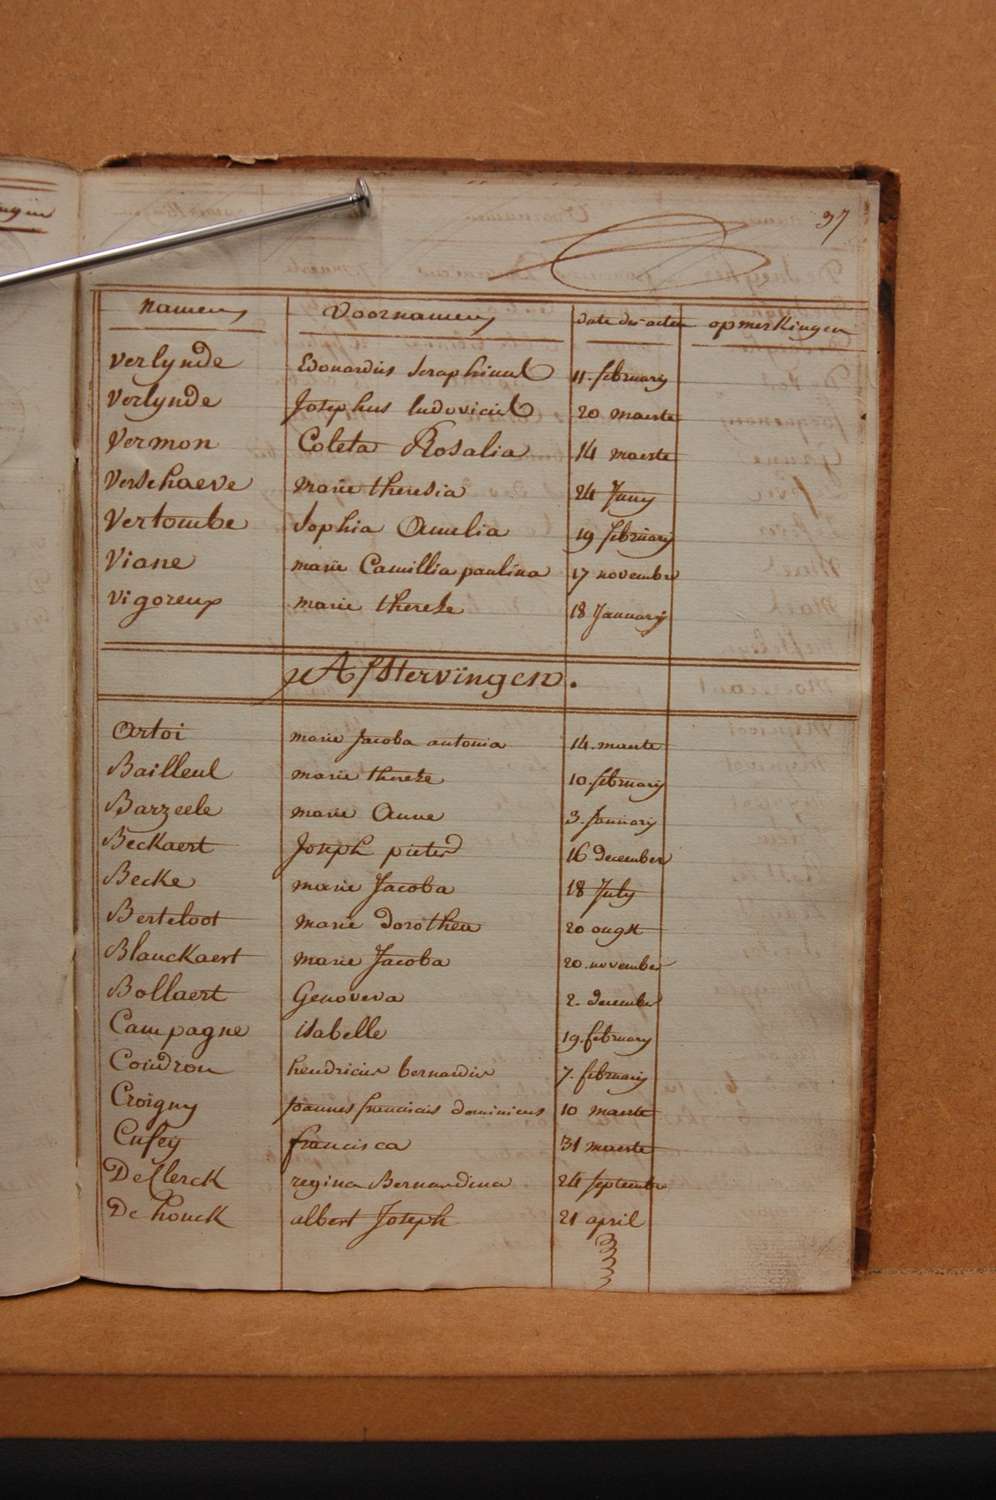 37
namen voornamen date der acten opmerkingen
Verlynde Edouardus Seraphinus 11. february
Verlynde Josephus ludovicus 20 maerte
Vermon Coleta Rosalia 14 maerte
Verschaeve marie theresia 24 Juny
Vertombe Sophia Amelia 19 february
Viane marie Camillia paulina 17 novembre
Vigoreux marie thereze 18 January
Afstervingen.
Artoi marie Jacoba antonia 14. maerte
Bailleul marie thereze 10. february
Barzeele marie Anne 3. January
Beckaert Joseph pieter 16 december
Becke marie Jacoba 18 July
Berteloot marie dorothea 20 ougst
Blanckaert marie Jacoba 20. november
Bollaert Genoveva 2. december
Campagne isabelle 19. february
Coudron hendricus bernardus 7. february
Croigny joannes franciscus dominicus 10 maerte
Cusey francisca 31 maerte
De Clerck regina Bernardina 24 septembre
De honck albert Joseph 21 april